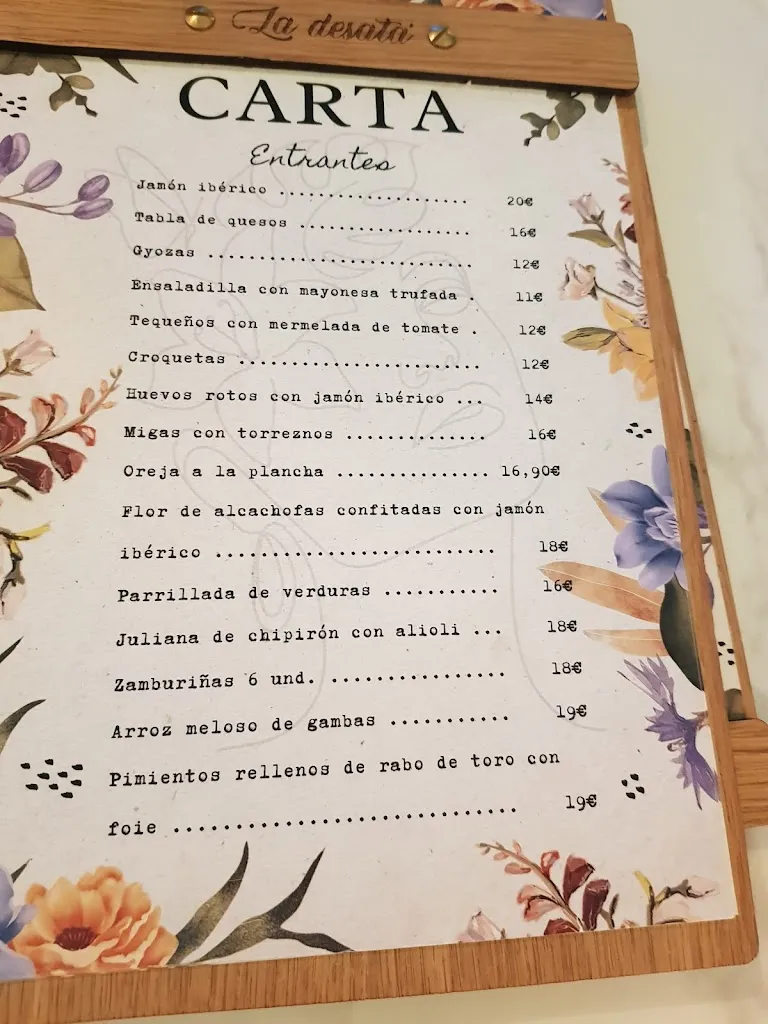 La desata
CARTA
Entrantes
Jamón ibérico ................... 20€
Tabla de quesos ................. 16€
Gyozas .......................... 12€
Ensaladilla con mayonesa trufada . 11€
Tequeños con mermelada de tomate . 12€
Croquetas ....................... 12€
Huevos rotos con jamón ibérico ... 14€
Migas con torreznos .............. 16€
Oreja a la plancha ............... 16,90€
Flor de alcachofas confitadas con jamón
ibérico .......................... 18€
Parrillada de verduras ........... 16€
Juliana de chipirón con alioli ... 18€
Zamburiñas 6 und. ................ 18€
Arroz meloso de gambas ........... 19€
Pimientos rellenos de rabo de toro con
foie ............................. 19€